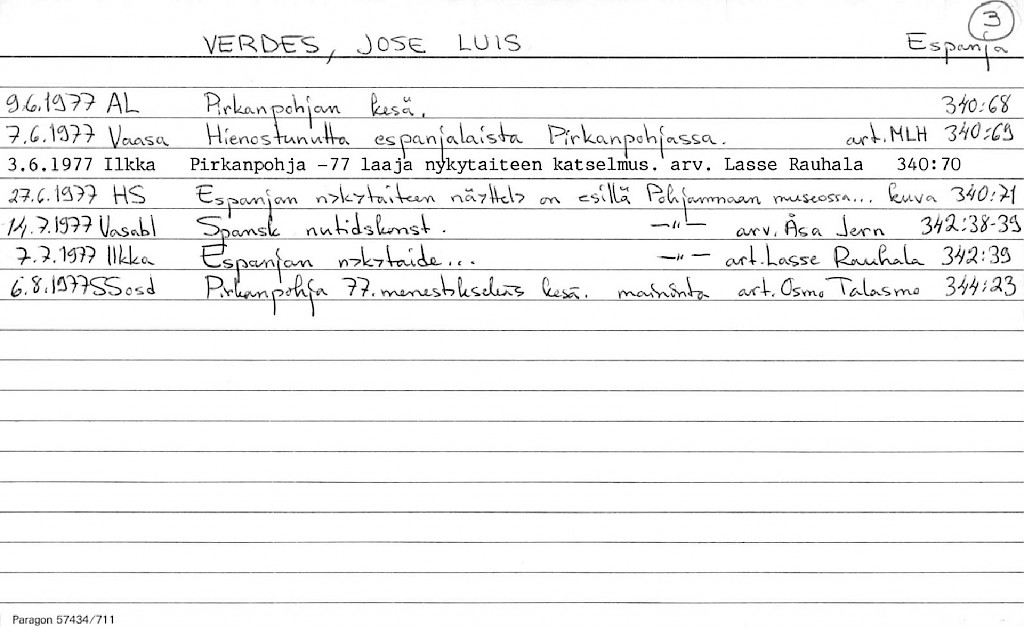 3
VERDES, JOSE LUIS Espanja
9.6.1977 AL Pirkanpohjan kesä. 340:68
7.6.1977 Vaasa Hienostunutta espanjalaista Pirkanpohjassa. art. MLH 340:69
3.6.1977 Ilkka Pirkanpohja -77 laaja nykytaiteen katselmus. arv. Lasse Rauhala 340:70
27.6.1977 HS Espanjan nykytaiteen näyttely on esillä Pohjanmaan museossa... kuva 340:71
14.7.1977 Vasabl Spansk nutidskonst. -"- arv. Åsa Jern 342:38-39
7.7.1977 Ilkka Espanjan nykytaide... -"- art. Lasse Rauhala 342:39
6.8.1977 SSosd Pirkanpohja 77. menestyksekäs kesä. maininta art. Osmo Talasmo 344:23
Paragon 57434/711